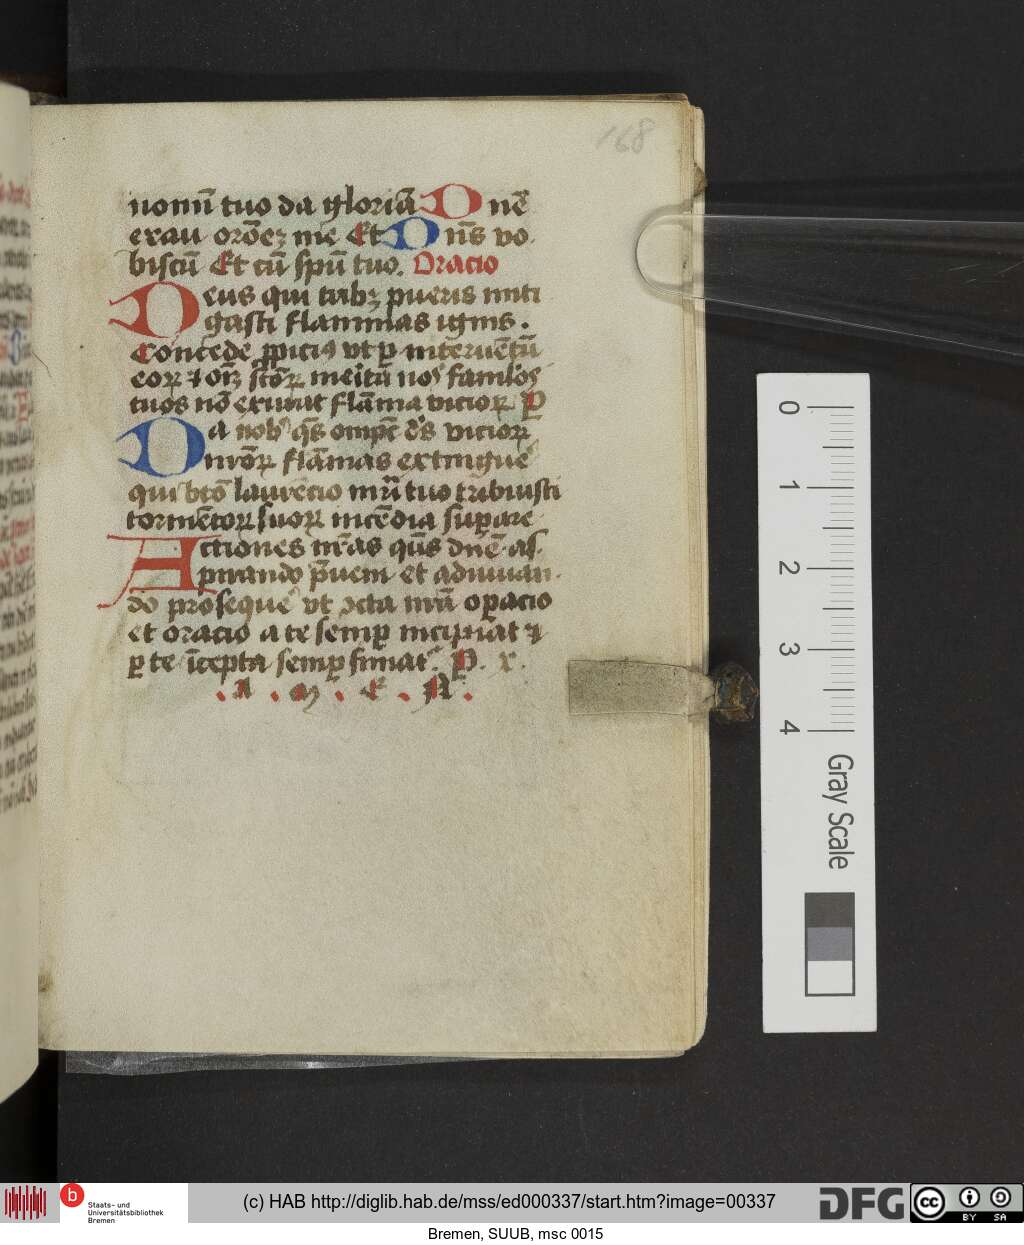 168
nomī tuo da gloriā Dnē
exau orōeꝫ me Et Dn̄s vo
biscū Et cū spū tuo. Oracio
Deus qui tribꝫ pueris miti
gasti flammas ignis.
Concede ꝓpiciꝰ vt ꝑ interuētū
eoꝝ ⁊ oīm sctōꝝ meitū nos famlos
tuos nō exurat flāma vicioꝝ P
Da nob qs omps ds vicioꝝ
nrōꝝ flāmas extingue
qui bto laurēcio mrī tuo tribuisti
tormētoꝝ suoꝝ incēdia suꝑare
Actiones nr̄as qs dn̄e as
pirando p̄ueni et adiuuan
do prosequē vt octa nrā oꝑacio
et oracio a te semꝑ incipiat ⁊
ꝑ te īcepta semꝑ finiat. P. x.
. A . M . E . N .
0
1
2
3
4
Gray Scale
b
Staats- und
Universitätsbibliothek
Bremen
(c) HAB http://diglib.hab.de/mss/ed000337/start.htm?image=00337
DFG
cc
BY SA
Bremen, SUUB, msc 0015